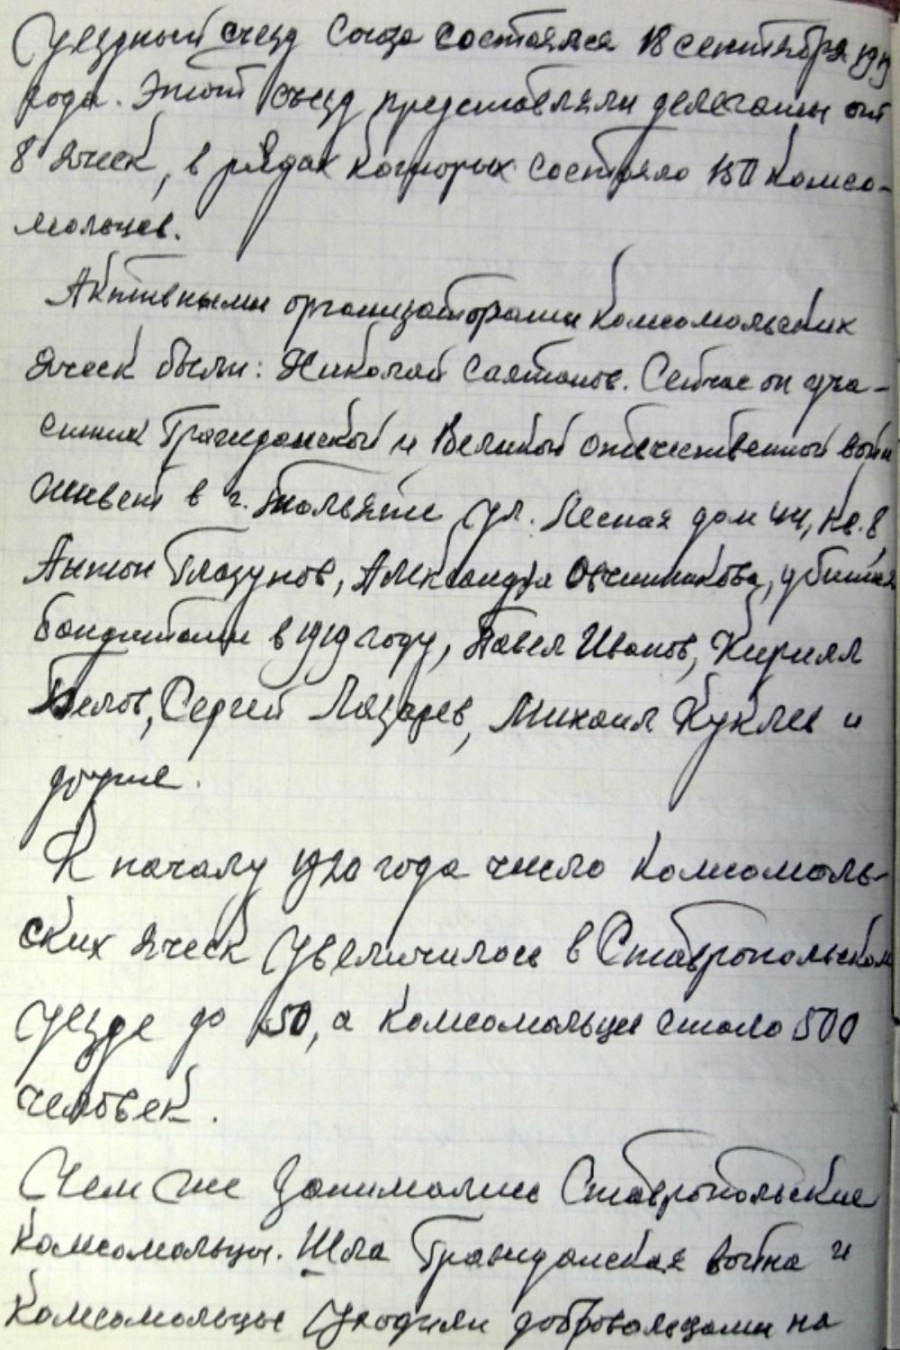 Уездный съезд Союза состоялся 18 сентября 1919
года. Этот съезд представляли делегаты от
8 ячеек, в рядах которых состояло 150 комсо-
мольцев.
Активными организаторами комсомольских
ячеек были: Николай Сейчас он уча-
стник Гражданской и Великой отечественной войн
живет в г. Тольятти ул. Лесная дом 44, кв. 8
Антон Глазунов, Александра Овчинникова, убитая
бандитами в 1919 году, Павел Иванов, Кирилл
Белов, Сергей Лазарев, Михаил Куклев и
другие.
К началу 1920 года число комсомоль-
ских ячеек увеличилось в Ставропольском
уезде до 50, а комсомольцев стало 500
человек.
Чем же занимались Ставропольские
комсомольцы. Шла Гражданская война и
комсомольцы уходили добровольцами на